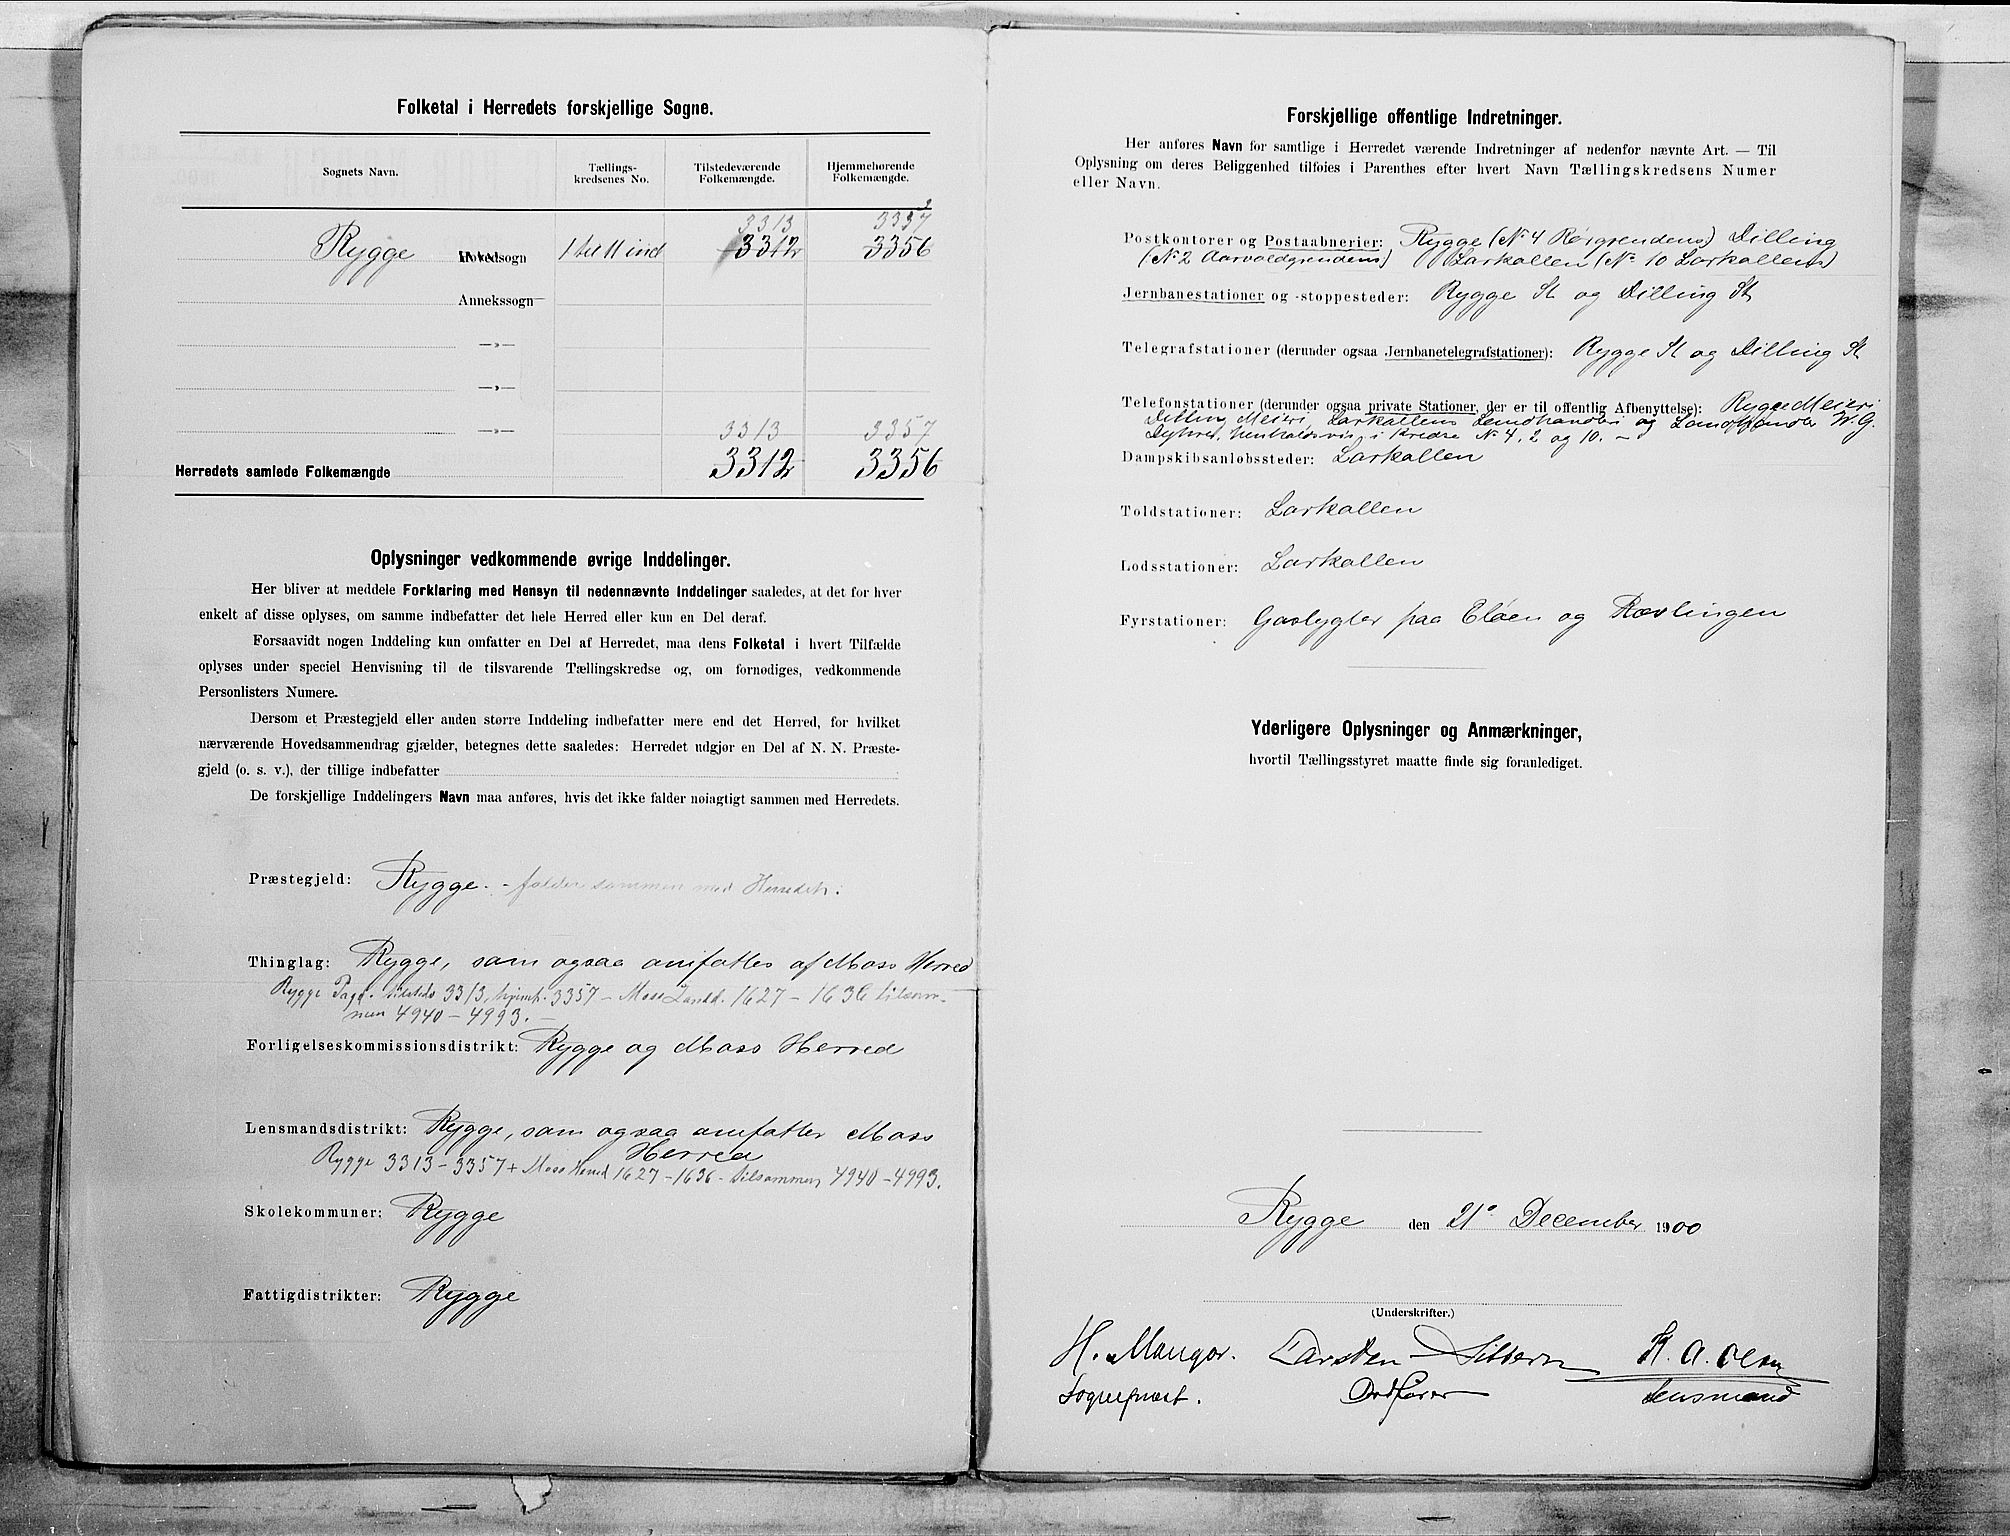 Folketal i Herredets forskjellige Sogne.
Sognets Navn. Tællings-kredsenes No. Tilstedeværende Folkemængde. Hjemmehørende Folkemængde.
3313 3357
Rygge Hovedsogn 1 til 11 incl 3312 3356
Annekssogn
—»—
—»—
3313 3357
—»—
Herredets samlede Folkemængde 3312 3356
Oplysninger vedkommende øvrige Inddelinger.
Her bliver at meddele Forklaring med Hensyn til nedennævnte Inddelinger saaledes, at det for hver
enkelt af disse oplyses, om samme indbefatter det hele Herred eller kun en Del deraf.
Forsaavidt nogen Inddeling kun omfatter en Del af Herredet, maa dens Folketal i hvert Tilfælde
oplyses under speciel Henvisning til de tilsvarende Tællingskredse og, om fornødiges, vedkommende
Personlisters Numere.
Dersom et Præstegjeld eller anden større Inddeling indbefatter mere end det Herred, for hvilket
nærværende Hovedsammendrag gjælder, betegnes dette saaledes: Herredet udgjør en Del af N. N. Præste-
gjeld (o. s. v.), der tillige indbefatter
De forskjellige Inddelingers Navn maa anføres, hvis det ikke falder nøiagtigt sammen med Herredets.
Præstegjeld: Rygge. - falder sammen med Herredet.
Thinglag: Rygge, som ogsaa omfatter af Moss Herred
Rygge tilstede 3313, hjemh. 3357 – Moss Landd. 1627 – 1636 tilsam-
men 4940 – 4993. –
Forligelseskommissionsdistrikt: Rygge og Moss Herred
Lensmandsdistrikt: Rygge, som ogsaa omfatter Moss
Herred
Rygge 3313 – 3357 + Moss Herred 1627 – 1636 - tilsammen 4940 – 4993.
Skolekommuner: Rygge
Fattigdistrikter: Rygge
Forskjellige offentlige Indretninger.
Her anføres Navn for samtlige i Herredet værende Indretninger af nedenfor nævnte Art. — Til
Oplysning om deres Beliggenhed tilføies i Parenthes efter hvert Navn Tællingskredsens Numer
eller Navn.
Postkontorer og Postaabnerier: Rygge (No 4 Rørgrendens) Dilling
(No 2 Aarvoldgrendens) Larkollen (No 10 Larkollens)
Jernbanestationer og -stoppesteder: Rygge St og Dilling St
Telegrafstationer (derunder ogsaa Jernbanetelegrafstationer): Rygge St og Dilling St
Telefonstationer (derunder ogsaa private Stationer, der er til offentlig Afbenyttelse): Rygge Meieri
Dilling Meieri, Larkollens Landhandleri og Landhandler W. G.
i Kredse No 4, 2 og 10. –
Dampskibsanløbssteder: Larkollen
Toldstationer: Larkollen
Lodsstationer: Larkollen
Fyrstationer: Gaslygter paa Eløen og Rævlingen
Yderligere Oplysninger og Anmærkninger,
hvortil Tællingsstyret maatte finde sig foranlediget.
Rygge den 21o December 1900
(Underskrifter.)
H. Mangor. Carsten Sibbern H. A. Olsen
Sognepræst. Ordfører Lensmand